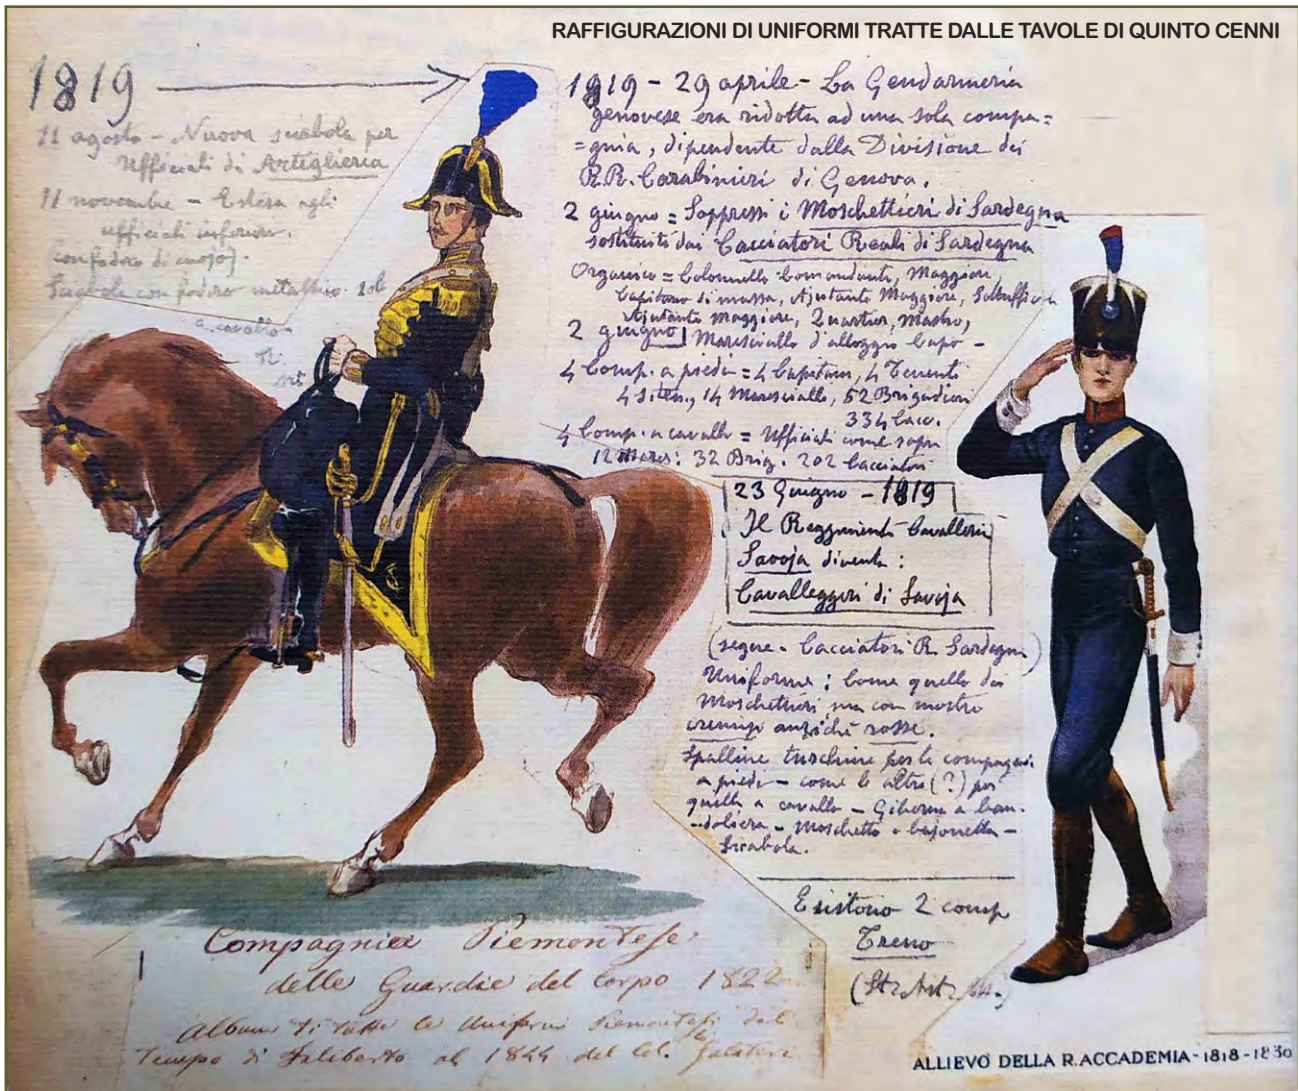 RAFFIGURAZIONI DI UNIFORMI TRATTE DALLE TAVOLE DI QUINTO CENNI
1819
11 agosto - Nuova sciabola per
Ufficiali di Artiglieria
11 novembre - Estesa agli
ufficiali inferiori.
(con fodero di cuojo).
Sciabole con fodero metallico. sol
a cavallo
1819 - 29 aprile - La Gendarmeria
genovese era ridotta ad una sola compa=
=gnia, dipendente dalla Divisione dei
R.R. Carabinieri di Genova.
2 giugno = Soppressi i Moschettieri di Sardegna
sostituiti dai Cacciatori Reali di Sardegna
Organico = Colonnello Comandante, Maggiore,
Capitano di massa, Ajutante Maggiore,
Ajutante Maggiore, Quartier, Mastro,
2 giugno Maresciallo d'alloggio Capo -
4 Comp. a piedi = 4 Capitani, 4 Tenenti
4 Sten, 14 Maresciallo, 52 Brigadieri
334 Cacc.
4 Comp. a cavallo = Ufficiali come sopra
12 Mares: 32 Brig. 202 Cacciatori
23 Giugno - 1819
Il Reggimento Cavalleria
Savoja diventa:
Cavalleggeri di Savoja
(segue - Cacciatori R. Sardegna)
Uniforme: Come quello dei
Moschettieri ma con mostre
cremisi anzichè rosse.
Spalline turchine per le compagnie
a piedi - come le altre (?) per
quelle a cavallo - Giberna a ban-
-doliera - Moschetto e bajonetta -
Sciabola.
Esistono 2 comp
Treno
Compagnia Piemontese
delle Guardie del Corpo 1822
Album di tutte le Uniformi Piemontesi dal
Tempo di Filiberto al 1844 del Col. Galateri
ALLIEVO DELLA R. ACCADEMIA - 1818 - 1830